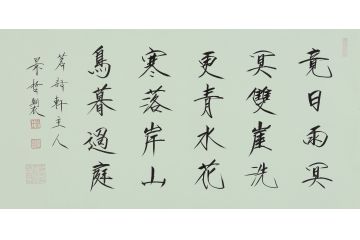 竟日雨冥
冥雙崖洗
更青水花
寒落岸山
鳥暮過庭
軒主人
製